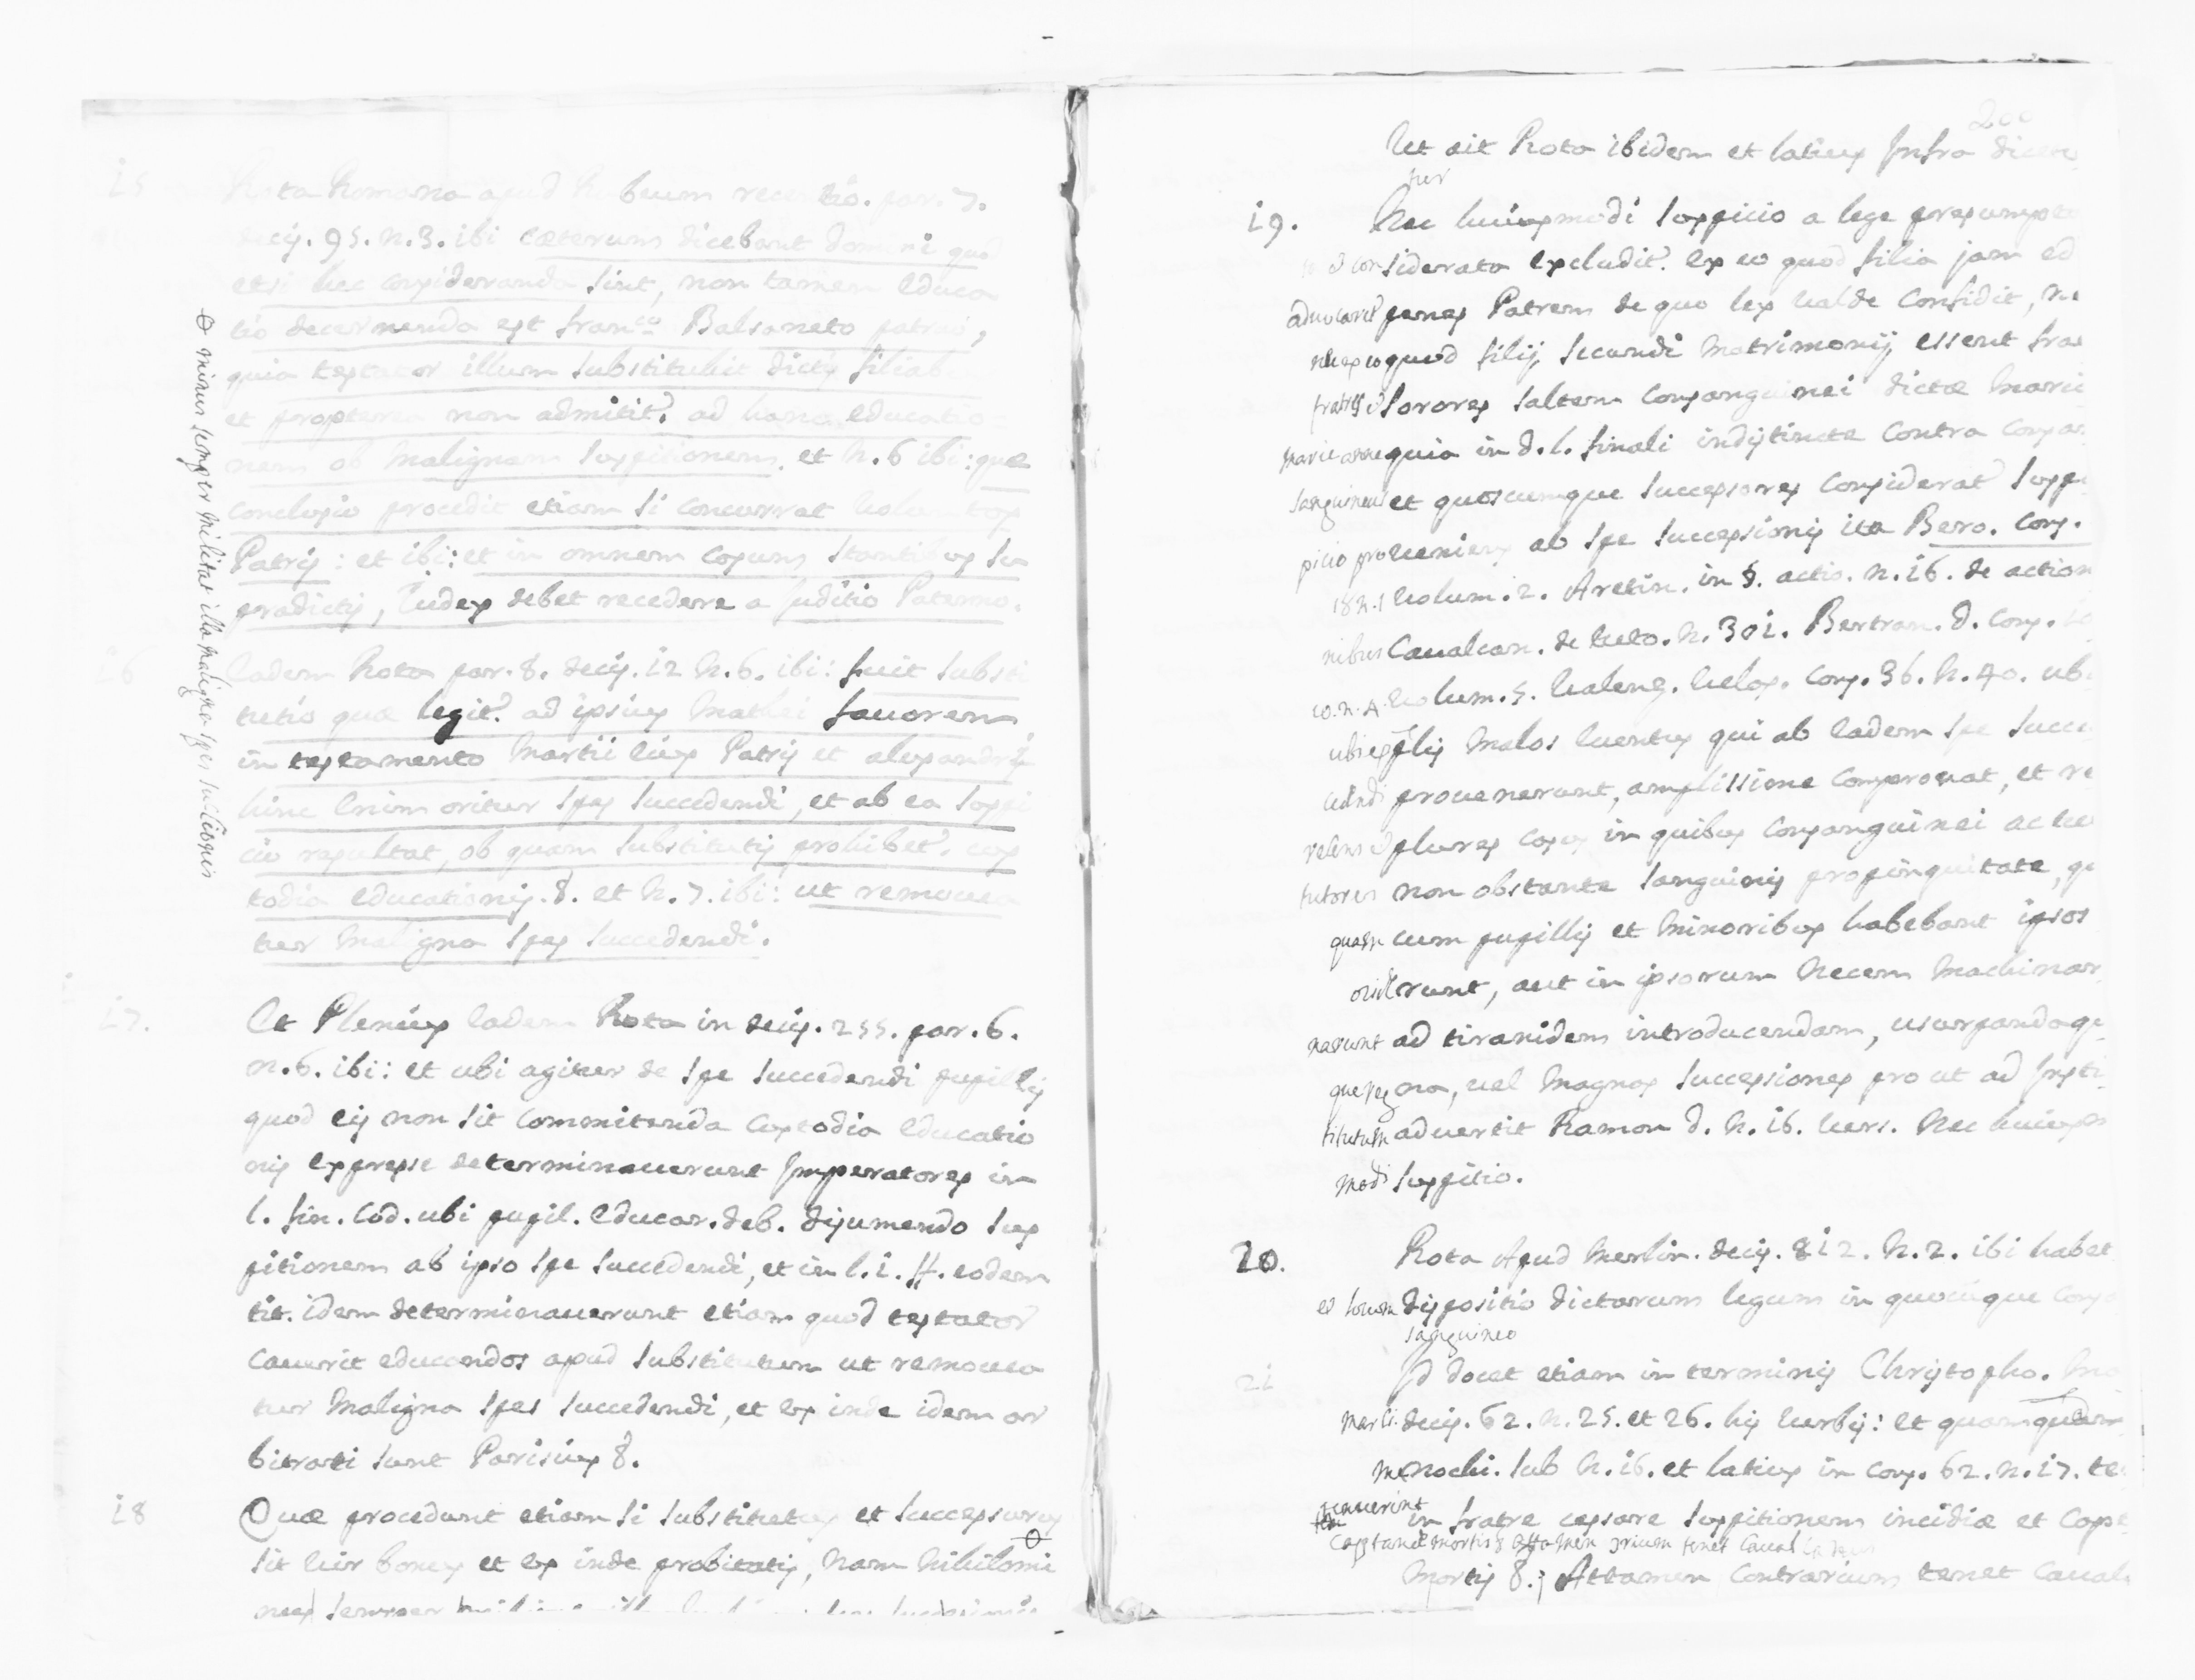 15 Rota Romana apud Rubeum recentio. par. 7.
decis. 95. n. 3. ibi cæterum dicebant Domini quod
etsi hec consideranda sint, non tamen educa
tio decernenda est Franco Balsaneto patruo,
quia testator illum substituit dictis filiabus
et propterea non admitit.r ad hanc educatio
nem ob malignam suspitionem. et n. 6 ibi: quæ
conclusio procedit etiam si concurrat voluntas
Patris: et ibi: et in omnem casum stantibus su
pradictis, Iudex debet recedere a Juditio Paterno.
16 Eadem Rota par. 8. decis. 12 n. 6. ibi: fuit substi
tutio quæ legit.r ad ipsius Mathei fauorem
in testamento Martii eius Patris et alexandri
hinc enim oritur spes succedendi, et ab ea suspi
cio resultat, ob quam substitutis prohibet.r cus
todia educationis. &. et n. 7. ibi: ut remouea
tur maligna spes succedendi.
17. Et Plenius eadem Rota in decis. 255. par. 6.
n. 6. ibi: et ubi agitur de spe succedendi pupillis
quod eis non sit committenda custodia educatio
nis expresse determinauerunt Imperatores in
l. fin. Cod. ubi pupil. educar. deb. disumendo sus
pitionem ab ipso spe succedendi, et in l. 1. ff. eodem
tit. idem determinauerunt etiam quod testator
cauerit educandos apud substitutum ut remouea
tur maligna spes succedendi, et ex inde idem ar
bitrati sunt Parisius &.
18 Quæ procedunt etiam si substitutus et successurus
sit uir bonus et ex inde probitatis, nam nihilomi
nus semper
⊖ minus semper militat illa maligna spes successionis
200
Ut ait Rota ibidem et latius Infra dicere
tur
19. Nec huiusmodi suspicio a lege presumpta
et considerata excludit.r ex eo quod filia jam ed
aduocaret penes Patrem de quo lex ualde confidit, ne
ue ex eo quod filij secundi Matrimonij essent fra
fratres et sorores saltem consanguinei dictæ Marie
Marie anne quia in d. l. finali indistincte contra consan
sanguineus et quoscumque successores considerat suspi
picio proueniens ab spe successionis ita Bero. cons.
182. 1 uolum. 2. Aretin. in §. actio. n. 16. de action
nibus Caualcan. de tuto. n. 301. Bertran. d. cons.
co. n. 4. uolum. 5. Ualenz. Uelas. cons. 36. n. 40. ub
ubi explis malos euentus qui ab eadem spe succe
cedendi prouenerunt, amplissime comprouat, et re
referens et plures casus in quibus consanguinei ac tu
tutores non obstante sanguinis propinquitate, qu
quam cum pupillis et minoribus habebant ipsos
occiderunt, aut in ipsorum necem machinar
narunt ad tiranidem introducendam, usurpandaq
que regna, uel magnas successiones pro ut ad Insti
titutum aduertit Ramon d. n. 16. uers. Nec huius
modi suspitio.
20. Rota Apud Merlin. decis. 812. n. 2. ibi habet
et locum dispositio dictarum legum in quocunque cons
sanguineo
21 Id docet etiam in terminis Christopho.
Marti. decis. 62. n. 25. et 26. his uerbis: et quamquam
Menochi. sub n. 16. et latius in cons. 62. n. 17. te
tenuerint in fratre cessare suspitionem incidiæ et Capt
Captandæ mortis & attamen contrarium tenet Caual
mortis &.; Attamen contrarium tenet Caual